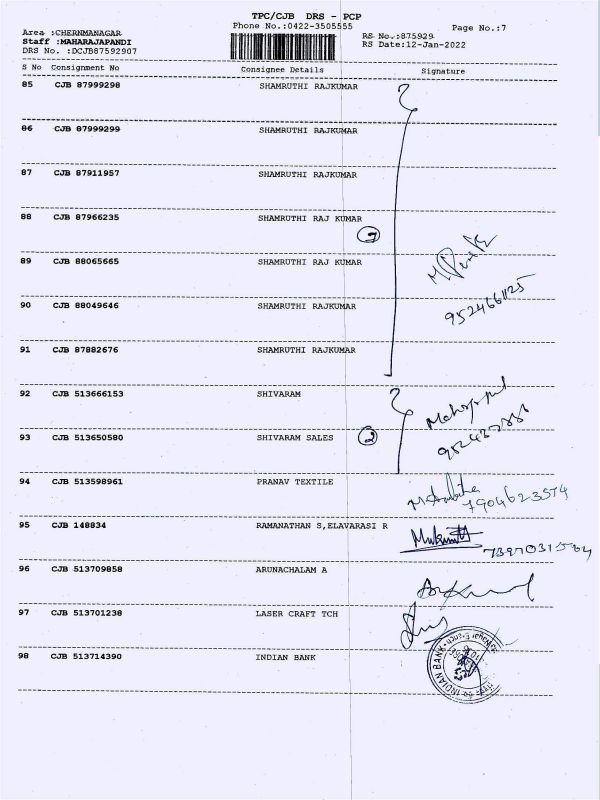 TPC/CJB DRS - PCP
Phone No.:0422-3505555
Page No.:7
Area :CHERNMANAGAR
Staff :MAHARAJAPANDI
DRS No. :DCJB87592907
RS No.:875929
RS Date:12-Jan-2022
S No Consignment No Consignee Details Signature
85 CJB 87999298 SHAMRUTHI RAJKUMAR
86 CJB 87999299 SHAMRUTHI RAJKUMAR
87 CJB 87911957 SHAMRUTHI RAJKUMAR
88 CJB 87966235 SHAMRUTHI RAJ KUMAR
7
89 CJB 88065665 SHAMRUTHI RAJ KUMAR
90 CJB 88049646 SHAMRUTHI RAJKUMAR
91 CJB 87882676 SHAMRUTHI RAJKUMAR
92 CJB 513666153 SHIVARAM
93 CJB 513650580 SHIVARAM SALES
2
94 CJB 513598961 PRANAV TEXTILE
7904623574
95 CJB 148834 RAMANATHAN S,ELAVARASI R
96 CJB 513709858 ARUNACHALAM A
97 CJB 513701238 LASER CRAFT TCH
98 CJB 513714390 INDIAN BANK
INDIAN BANK